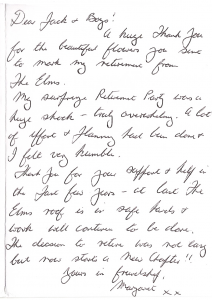 Dear Jack & Boys!
A huge Thank You
for the beautiful flowers you sent
to mark my retirement from
The Elms.
My surprize Retirement Party was a
huge shock – truly overwhelming. A lot
of effort & planning had been done &
I felt very humble.
Thank you for your support & help in
the last few years – at last The
Elms roof is in safe hands &
work will continue to be done.
The decision to retire was not easy
but now starts a New Chapter!!
Yours in friendship,
Margaret xx